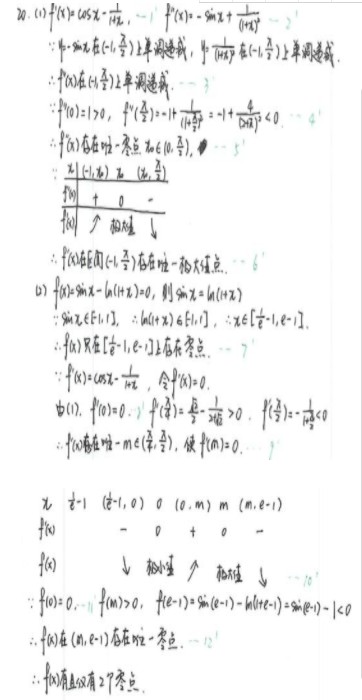 20. (1) f'(x)=cosx-1/(1+x), --1' f''(x)=-sinx+1/(1+x)² --2'
∵y=-sinx在(-1,π/2)上单调递减, y=1/(1+x)²在(-1,π/2)上单调递减,
∴f''(x)在(-1,π/2)上单调递减. --3'
∵f''(0)=1>0, f''(π/2)=-1+1/(1+π/2)²=-1+4/(2+π)²<0. --4'
∴f''(x)存在唯一零点x₀∈(0,π/2), --5'
∴
x (-1,x₀) x₀ (x₀,π/2)
f''(x) + 0 -
f'(x) ↗ 极大值 ↓
∴f'(x)在区间(-1,π/2)存在唯一极大值点. --6'
(2) f(x)=sinx-ln(1+x)=0, 则sinx=ln(1+x)
∵sinx∈[-1,1], ∴ln(1+x)∈[-1,1], ∴x∈[1/e-1,e-1].
∴f(x)只在[1/e-1,e-1]上存在零点. --7'
∵f'(x)=cosx-1/(1+x), 令f'(x)=0.
由(1), f'(0)=0. f'(π/4)=√2/2-1/(1+π/4)>0. f'(π/2)=-1/(1+π/2)<0
∴f'(x)存在唯一m∈(π/4,π/2), 使f'(m)=0. --9'
x 1/e-1 (1/e-1,0) 0 (0,m) m (m,e-1)
f'(x) - 0 + 0 -
f(x) ↓ 极小值 ↗ 极大值 ↓ --10'
∵f(0)=0, --11' f(m)>0, f(e-1)=sin(e-1)-ln(1+e-1)=sin(e-1)-1<0
∴f(x)在(m,e-1)存在唯一零点. --12'
∴f(x)有且仅有2个零点.